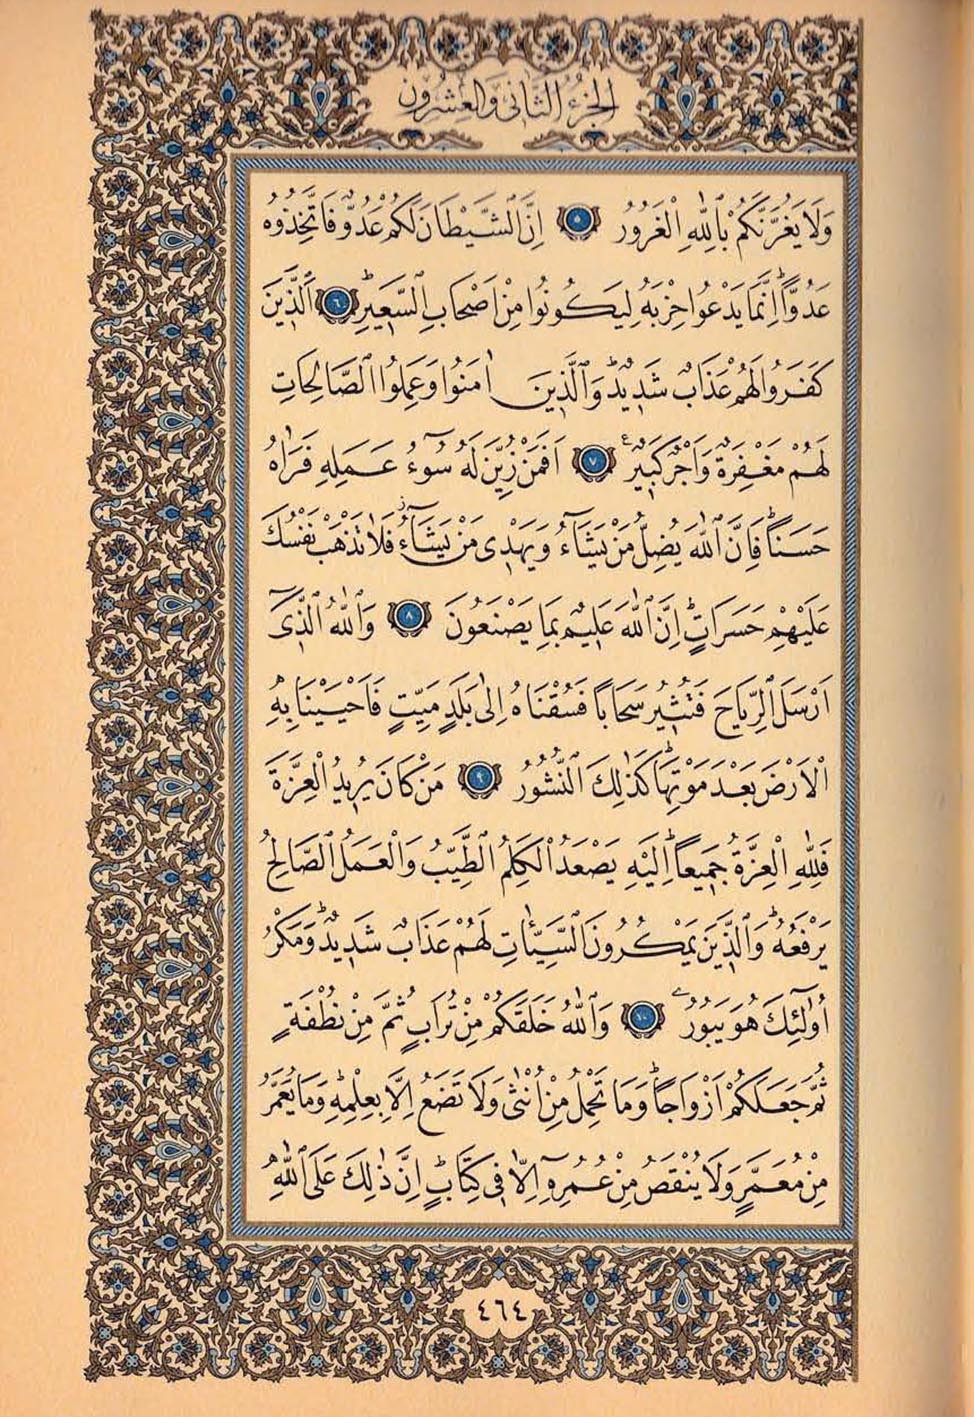 الجزء الثاني والعشرون
وَلَا يَغُرَّنَّكُمْ بِاللّٰهِ الْغَرُورُ ﴿٥﴾ اِنَّ الشَّيْطَانَ لَكُمْ عَدُوٌّ فَاتَّخِذُوهُ
عَدُوًّاۜ اِنَّمَا يَدْعُوا حِزْبَهُ لِيَكُونُوا مِنْ اَصْحَابِ السَّعِيرِۜ ﴿٦﴾ اَلَّذِينَ
كَفَرُوا لَهُمْ عَذَابٌ شَدِيدٌۜ وَالَّذِينَ اٰمَنُوا وَعَمِلُوا الصَّالِحَاتِ
لَهُمْ مَغْفِرَةٌ وَاَجْرٌ كَبِيرٌ۟ ﴿٧﴾ اَفَمَنْ زُيِّنَ لَهُ سُٓوءُ عَمَلِهِ فَرَاٰهُ
حَسَنًاۜ فَاِنَّ اللّٰهَ يُضِلُّ مَنْ يَشَٓاءُ وَيَهْدِي مَنْ يَشَٓاءُۘ فَلَا تَذْهَبْ نَفْسُكَ
عَلَيْهِمْ حَسَرَاتٍۜ اِنَّ اللّٰهَ عَلِيمٌ بِمَا يَصْنَعُونَ ﴿٨﴾ وَاللّٰهُ الَّذِٓي
اَرْسَلَ الرِّيَاحَ فَتُثِيرُ سَحَابًا فَسُقْنَاهُ اِلٰى بَلَدٍ مَيِّتٍ فَاَحْيَيْنَا بِهِ
الْاَرْضَ بَعْدَ مَوْتِهَاۜ كَذٰلِكَ النُّشُورُ ﴿٩﴾ مَنْ كَانَ يُرِيدُ الْعِزَّةَ
فَلِلّٰهِ الْعِزَّةُ جَمِيعًاۜ اِلَيْهِ يَصْعَدُ الْكَلِمُ الطَّيِّبُ وَالْعَمَلُ الصَّالِحُ
يَرْفَعُهُۜ وَالَّذِينَ يَمْكُرُونَ السَّيِّـَٔاتِ لَهُمْ عَذَابٌ شَدِيدٌۜ وَمَكْرُ
اُو۬لٰٓئِكَ هُوَ يَبُورُ ﴿١٠﴾ وَاللّٰهُ خَلَقَكُمْ مِنْ تُرَابٍ ثُمَّ مِنْ نُطْفَةٍ
ثُمَّ جَعَلَكُمْ اَزْوَاجًاۜ وَمَا تَحْمِلُ مِنْ اُنْثٰى وَلَا تَضَعُ اِلَّا بِعِلْمِهِۜ وَمَا يُعَمَّرُ
مِنْ مُعَمَّرٍ وَلَا يُنْقَصُ مِنْ عُمُرِهِٓ اِلَّا فِي كِتَابٍۜ اِنَّ ذٰلِكَ عَلَى اللّٰهِ
٤٦٤